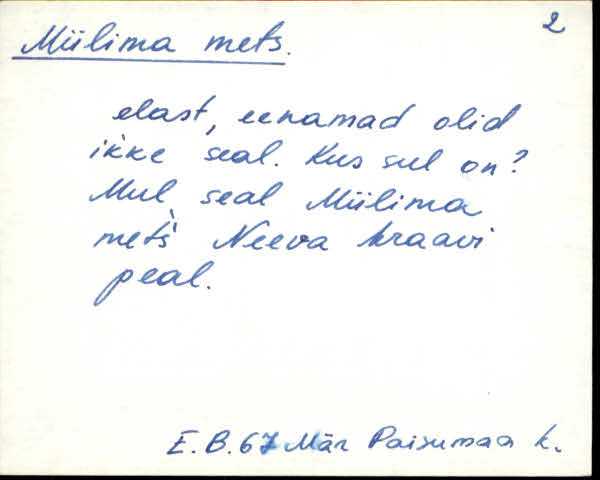 2
Miilima mets.
elast, eenamad olid
ikke seal. Kus sul on?
Mul, seal Miilima
mets Neeva kraavi
peal.
E.B.67 Mär Paisumaa k.